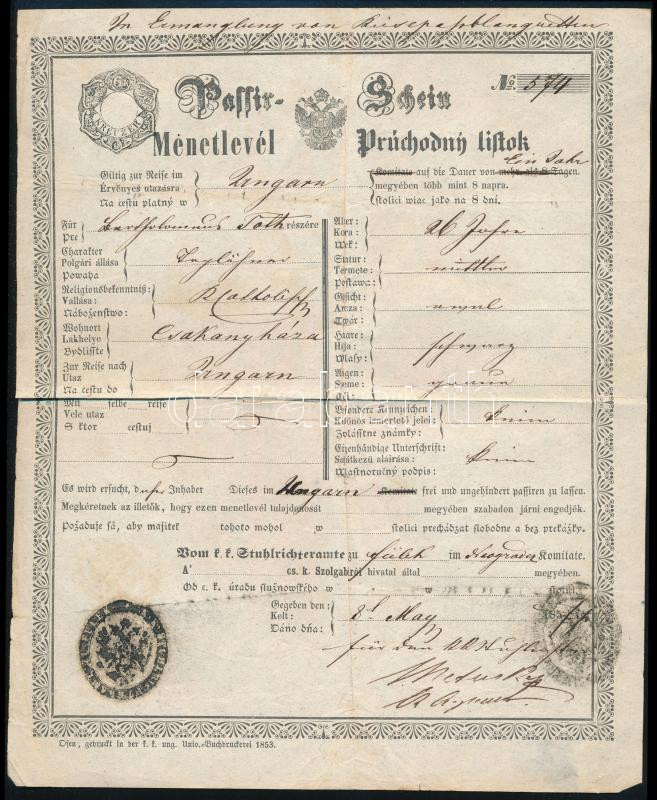 In Ermanglung von Reisepaßblanquetten
6 KREUZER C.M.
Passir-Schein № 574
Menetlevél Průchodný lístok
Giltig zur Reise im
Érvényes utazásra Ungarn
Na cestu platný w
Komitate auf die Dauer von mehr als 8 Tagen. Ein Jahr
megyében több mint 8 napra.
stolici wiac jako na 8 dní.
Für
Pre Bartholomeus Toth részére
Charakter
Polgári állása
Powaha
Religionsbekenntniß:
Vallása:
Náboženstwo:
Wohnort
Lakhelye Csakanyháza
Bydlisste
Zur Reise nach
Utaz Ungarn
Na cestu do
Mit selbe reise
Vele utaz
S ktor cestuj
Alter:
Kora: 26 Jahre
Wek:
Statur:
Termete: mittler
Postawa:
Gesicht:
Arcza: oval
Twár:
Haare:
Haja: schwarz
Wlasy:
Augen:
Szeme: graue
Oči:
Besondere Kennzeichen:
Különös ismertető jelei: keine
Zolásstne známky:
Eigenhändige Unterschrift:
Sajátkezű aláirása: keine
Wlastnoručný podpis:
Es wird ersucht, Inhaber Dieses im Ungarn Komitate frei und ungehindert passiren zu lassen.
Megkéretnek az illetők, hogy ezen menetlevél tulajdonosát megyében szabadon járni engedjék.
Požaduje sa, aby majitek tohoto mohol w stolici prechádzat slobodne a bez prekážky.
Vom k. k. Stuhlrichteramte zu Fülek im Neograder Komitate.
A' cs. k. Szolgabírói hivatal által megyében.
Od c. k. úradu služnowského w w stolici.
Gegeben den:
Kelt: 8t May 185
Dáno dňa:
für den
Ofen, gedruckt in der k. k. ung. Univ.-Buchdruckerei 1853.
darabanth